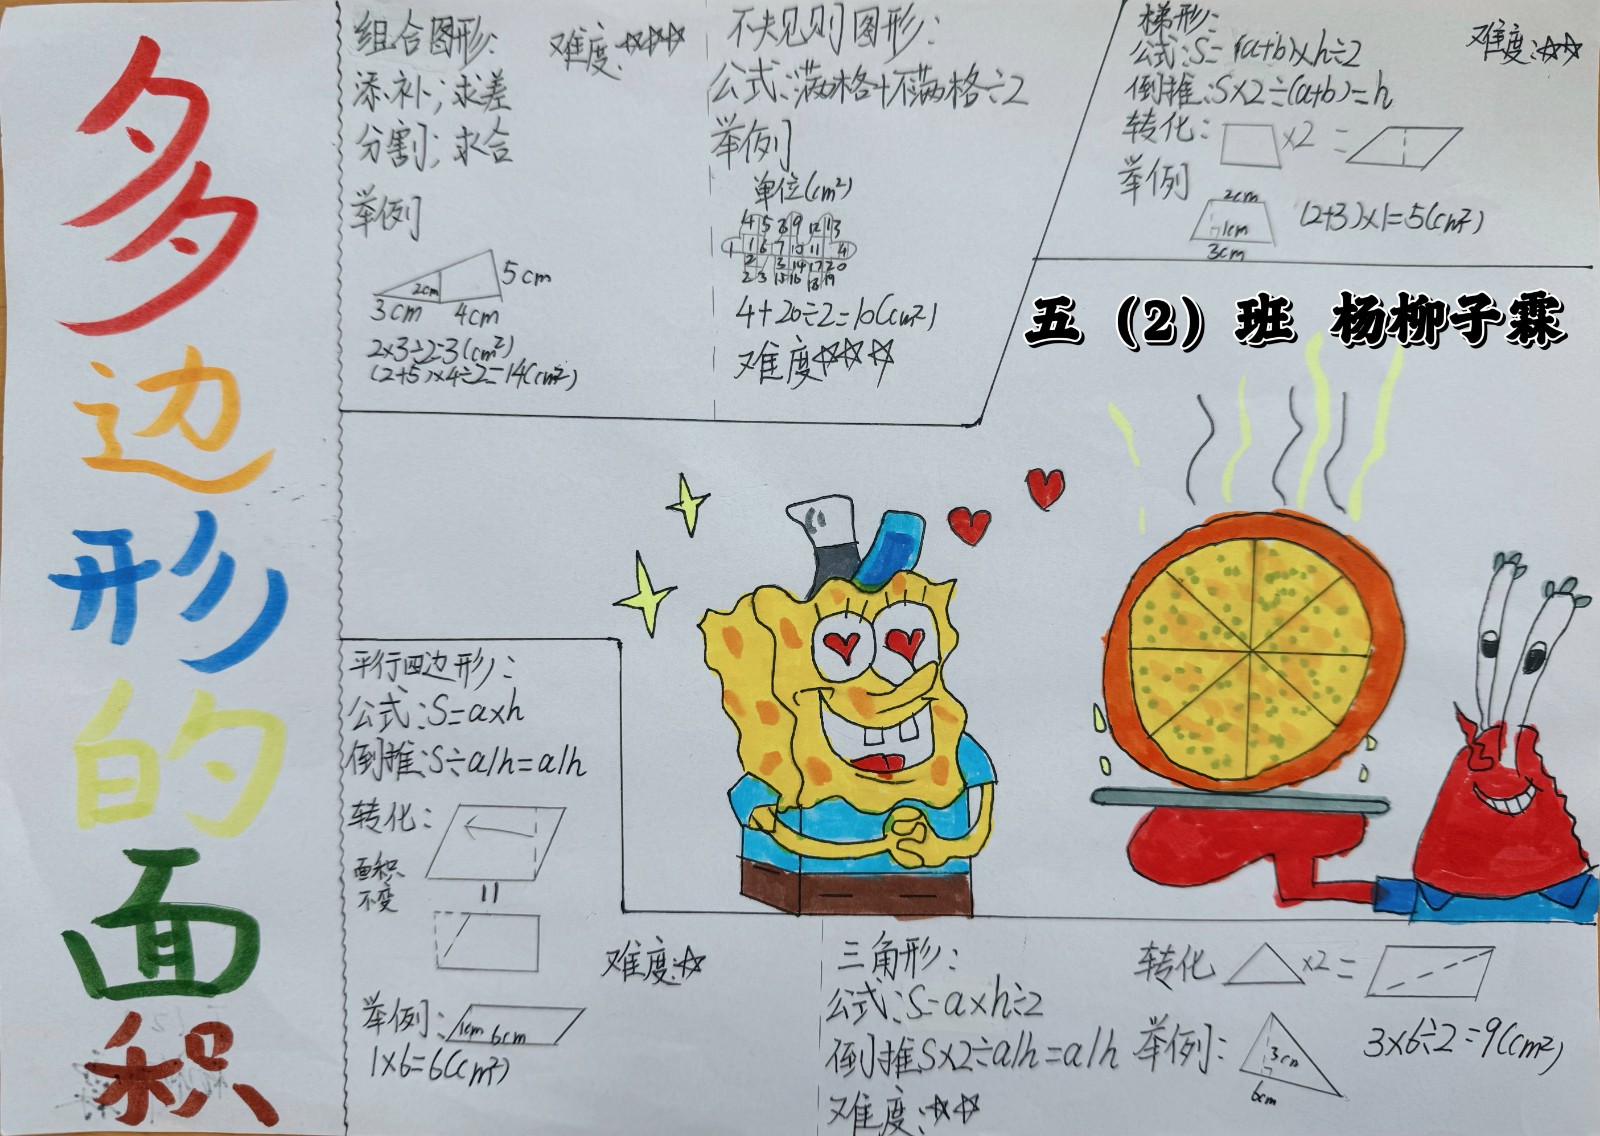 多边形的面积
组合图形: 难度:☆☆☆
添补;求差
分割;求合
举例
2cm 5cm
3cm 4cm
2×3÷2=3(cm²)
(2+5)×4÷2=14(cm²)
不夫见则图形:
公式:满格+不满格÷2
举例
单位(cm²)
4+20÷2=10(cm²)
难度☆☆☆
梯形: 难度:☆☆
公式:S=(a+b)×h÷2
倒推:S×2÷(a+b)=h
转化: ×2 =
举例
2cm
1cm
3cm
(2+3)×1=5(cm²)
五（2）班 杨柳子霖
平行四边形:
公式:S=a×h
倒推:S÷a/h=a/h
转化:
面积
不变
=
难度:☆
举例: 1cm 6cm
1×6=6(cm²)
三角形:
公式:S=a×h÷2
倒推S×2÷a/h=a/h
难度:☆☆
转化 ×2=
举例: 3cm
6cm
3×6÷2=9(cm²)